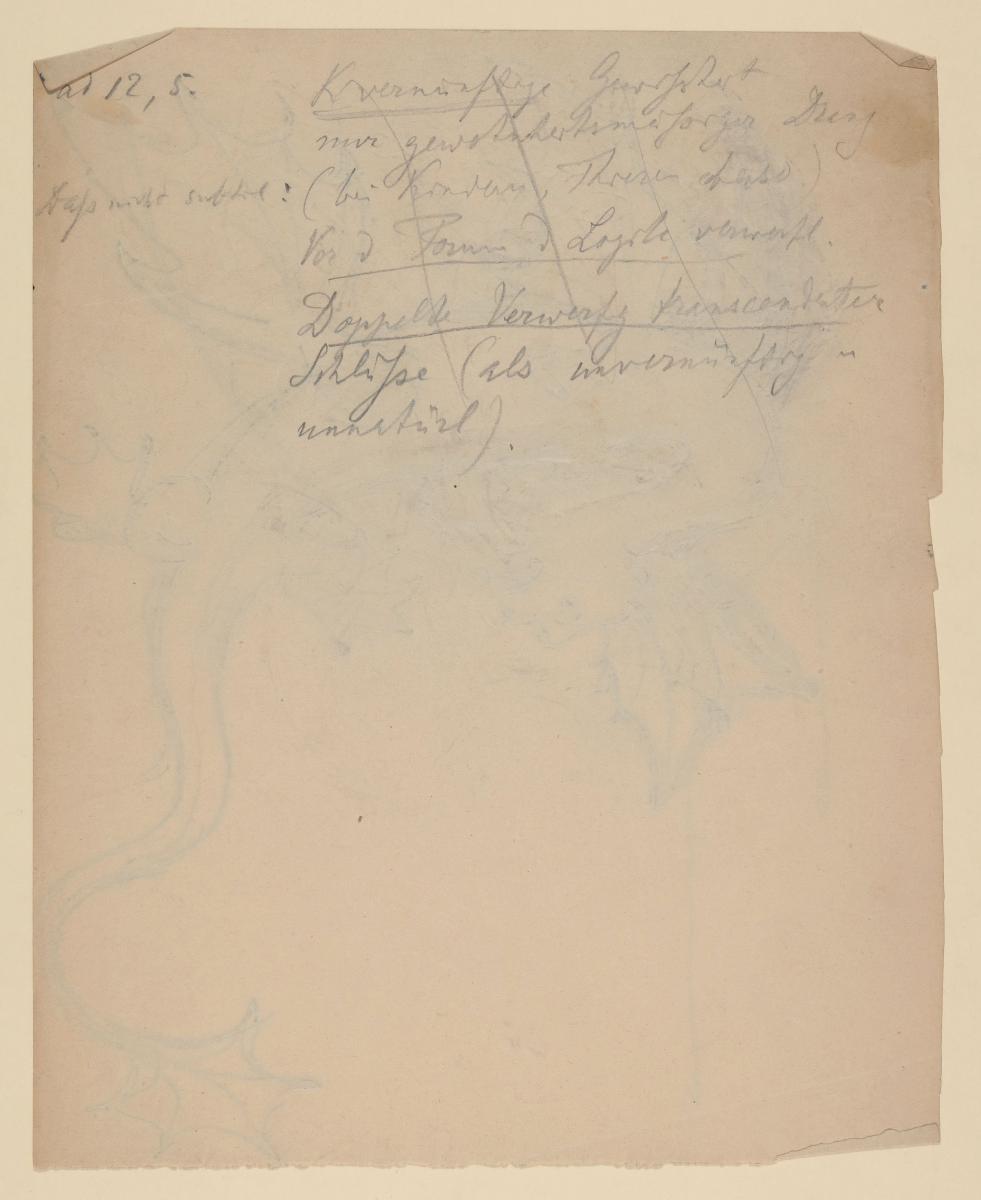 ad 12, 5.
K vernünftige Gewißheit
nur gewohnheitsmäßiger Drang
Daß nicht subtil:
(bei Kindern, Thieren ebenso)
Vor d Forum d Logik verwerfl.
Doppelte Verwerfg transcendenter
Schlüße (als unvernünftig u
unnatürl).